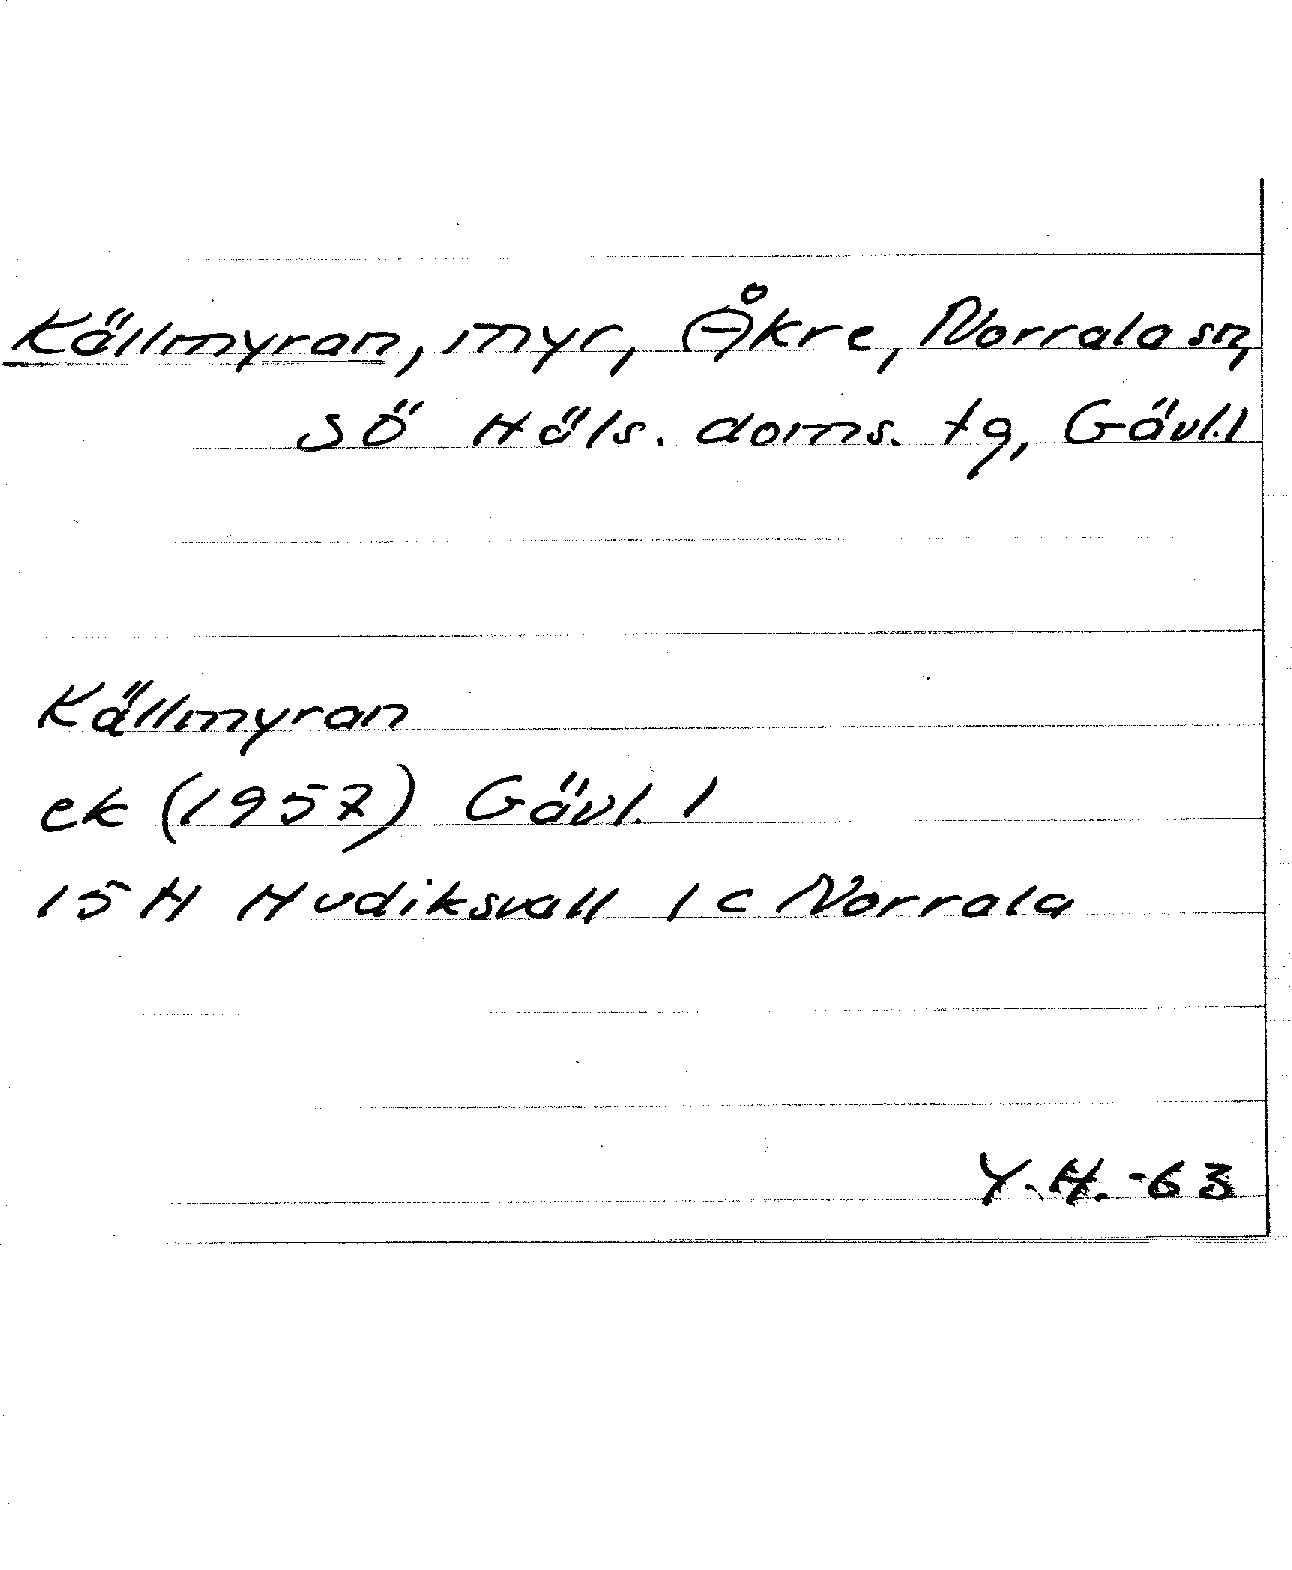 Källmyran, myr, Åkre, Norrala sn,
SÖ Häls. doms. tg, Gävl.l
Källmyran
ek (1957) Gävl. l
15 H Hudiksvall 1 c Norrala
Y.H. -63